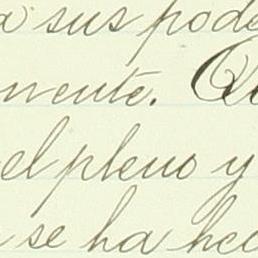 a sus pode
mente. Qu
el pleno y
se ha hec